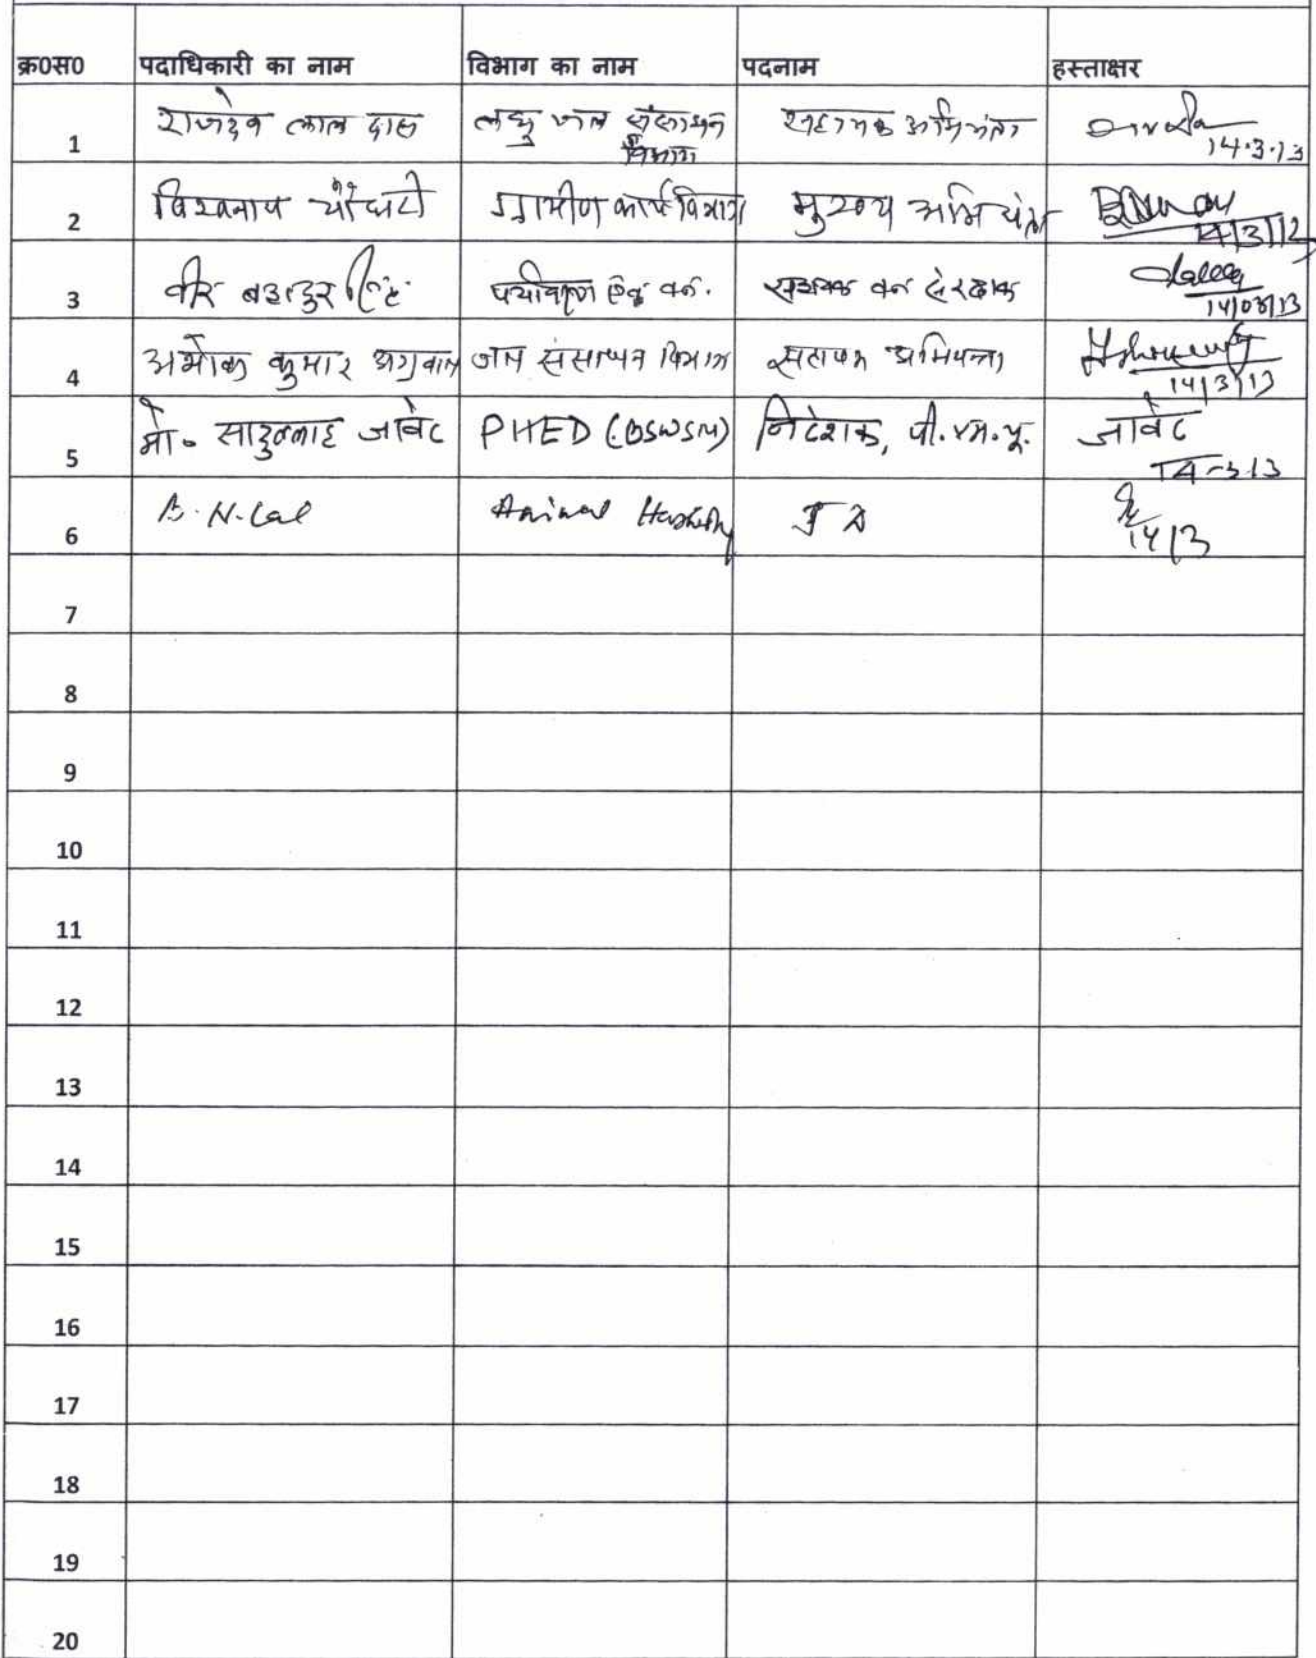 क्र0स0 पदाधिकारी का नाम विभाग का नाम पदनाम हस्ताक्षर
1 राजदेव लाल दास लघु जल संसाधन विभाग सहायक अभियंता 14.3.13
2 विश्वनाथ चौधरी ग्रामीण कार्य विभाग मुख्य अभियंता 14/3/13
3 वीर बहादुर सिंह पर्यावरण एवं वन. सहायक वन संरक्षक 14/03/13
4 अशोक कुमार अग्रवाल जल संसाधन विभाग सहायक अभियन्ता 14/3/13
5 मो० सादुल्लाह जावेद PHED (BSWSM) निदेशक, पी.एम.यू. जावेद 14-3-13
6 B.N.Lal Animal Husbandry J D 14/3
7
8
9
10
11
12
13
14
15
16
17
18
19
20